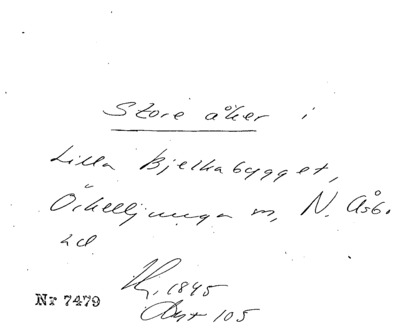 Store åker i
Lilla Bjelkabygget,
Örkelljunga sn, N. Åsb.
hd
1845
Akt 105
Nr 7479